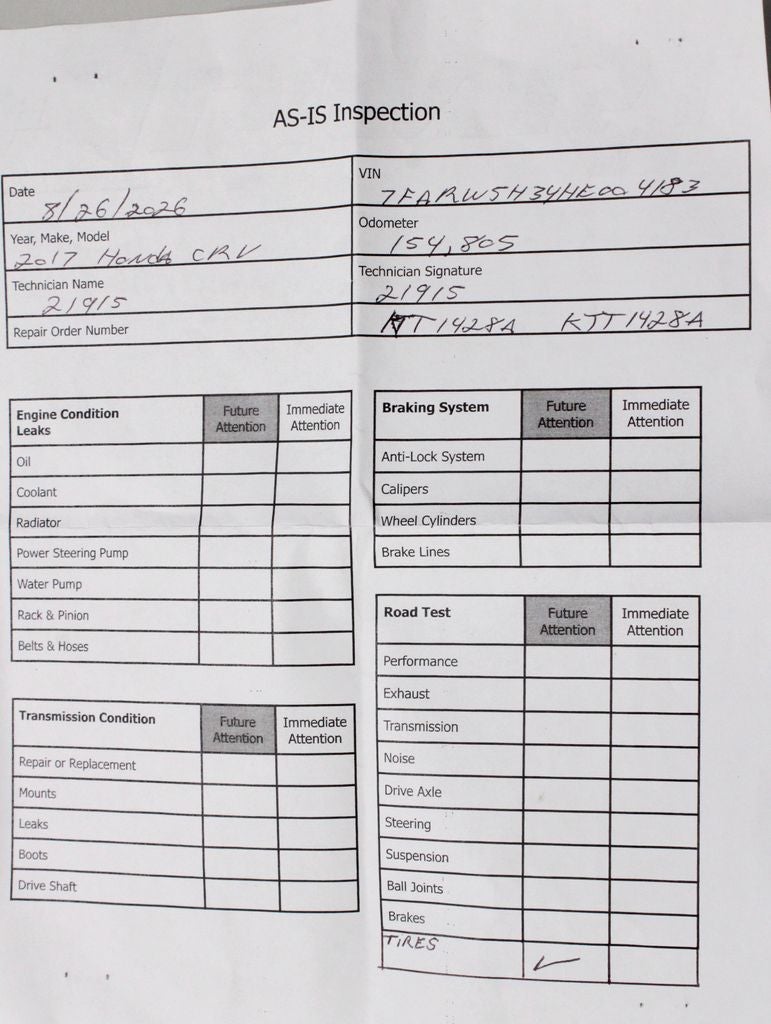 AS-IS Inspection
Date
8/26/2026
VIN
7FARW5H34HE004183
Year, Make, Model
2017 Honda CRV
Odometer
154,805
Technician Name
21915
Technician Signature
21915
Repair Order Number
KTT1428A KTT1428A
Engine Condition Leaks Future Attention Immediate Attention
Oil
Coolant
Radiator
Power Steering Pump
Water Pump
Rack & Pinion
Belts & Hoses
Transmission Condition Future Attention Immediate Attention
Repair or Replacement
Mounts
Leaks
Boots
Drive Shaft
Braking System Future Attention Immediate Attention
Anti-Lock System
Calipers
Wheel Cylinders
Brake Lines
Road Test Future Attention Immediate Attention
Performance
Exhaust
Transmission
Noise
Drive Axle
Steering
Suspension
Ball Joints
Brakes
TIRES ✓